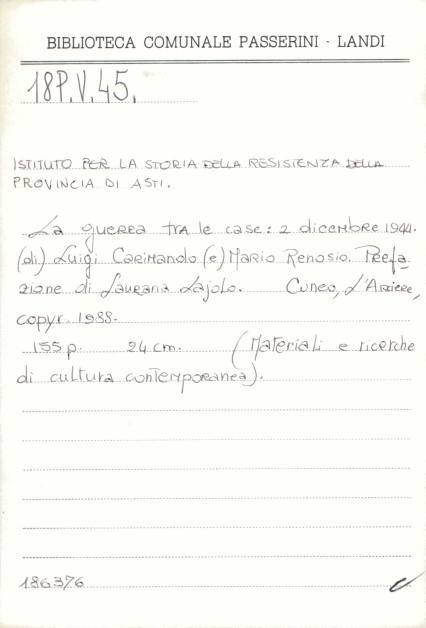 BIBLIOTECA COMUNALE PASSERINI - LANDI
18P.V.45.
ISTITUTO PER LA STORIA DELLA RESISTENZA DELLA
PROVINCIA DI ASTI.
La guerra tra le case: 2 dicembre 1944.
(di) Luigi Carimando (e) Mario Renosio. Prefa-
zione di Laurana Lajolo. Cuneo, L'Arciere,
copyr. 1988.
155 p. 24 cm. (Materiali e ricerche
di cultura contemporanea).
186376